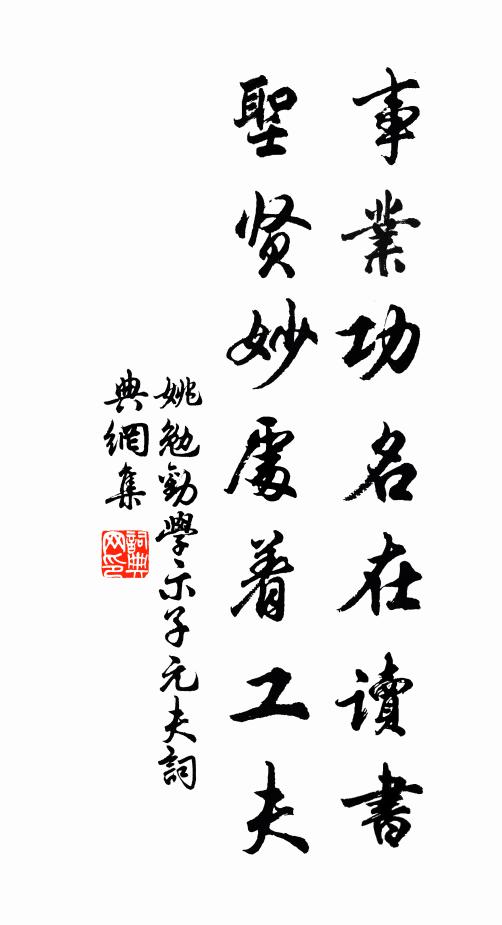 事業功名在讀書
聖贤妙處着工夫
姚勉勸學示子元夫詞
典網集
詞典
网印